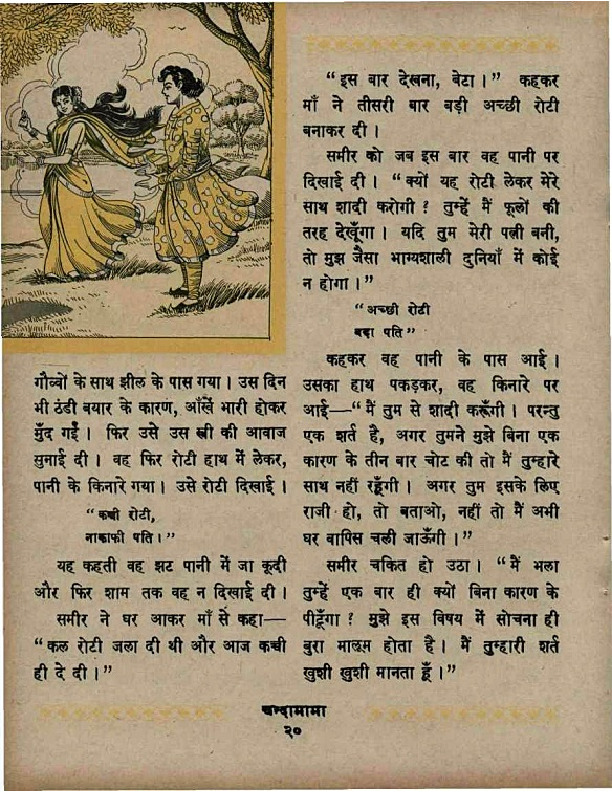 गौव्वों के साथ झील के पास गया । उस दिन
भी ठंडी बयार के कारण, आँखें भारी होकर
मुँद गईं । फिर उसे उस स्त्री की आवाज
सुनाई दी । वह फिर रोटी हाथ में लेकर,
पानी के किनारे गया । उसे रोटी दिखाई ।
“ कच्ची रोटी,
नाकाफी पति । ”
यह कहती वह झट पानी में जा कूदी
और फिर शाम तक वह न दिखाई दी ।
समीर ने घर आकर माँ से कहा—
“ कल रोटी जला दी थी और आज कच्ची
ही दे दी । ”
“ इस बार देखना, बेटा । ” कहकर
माँ ने तीसरी बार बड़ी अच्छी रोटी
बनाकर दी ।
समीर को जब इस बार वह पानी पर
दिखाई दी । “ क्यों यह रोटी लेकर मेरे
साथ शादी करोगी ? तुम्हें मैं फूलों की
तरह देखूँगा । यदि तुम मेरी पत्नी बनी,
तो मुझ जैसा भाग्यशाली दुनियाँ में कोई
न होगा । ”
“ अच्छी रोटी
बढ़ा पति ”
कहकर वह पानी के पास आई ।
उसका हाथ पकड़कर, वह किनारे पर
आई—“ मैं तुम से शादी करूँगी । परन्तु
एक शर्त है, अगर तुमने मुझे बिना एक
कारण के तीन बार चोट की तो मैं तुम्हारे
साथ नहीं रहूँगी । अगर तुम इसके लिए
राजी हो, तो बताओ, नहीं तो मैं अभी
घर वापिस चली जाऊँगी । ”
समीर चकित हो उठा । “ मैं भला
तुम्हें एक बार ही क्यों बिना कारण के
पीटूँगा ? मुझे इस विषय में सोचना ही
बुरा मालूम होता है । मैं तुम्हारी शर्त
खुशी खुशी मानता हूँ । ”
चन्दामामा
२०